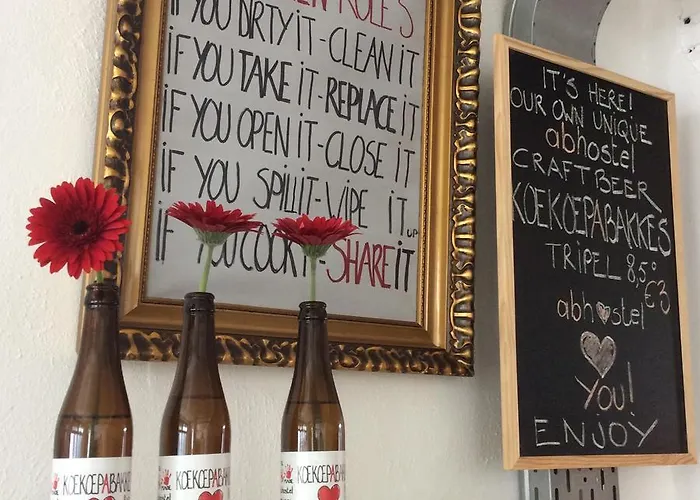 KITCHEN RULES
IF YOU DIRTY IT-CLEAN IT
IF YOU TAKE IT-REPLACE IT
IF YOU OPEN IT-CLOSE IT
IF YOU SPILL IT-WIPE IT UP
IF YOU COOK IT-SHARE IT
IT'S HERE!
OUR OWN UNIQUE
abhostel
CRAFT BEER
KOEKOEPABAKKES
TRIPEL 8,5°
€3
abh♥stel
♥
YOU!
ENJOY
KOEKOEPABAKK
KOEKOEPABAKK
KOEKOEPABAKK